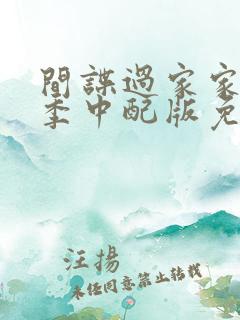 間諜過家家
季中配版免
汪揚
未经同意禁止转载